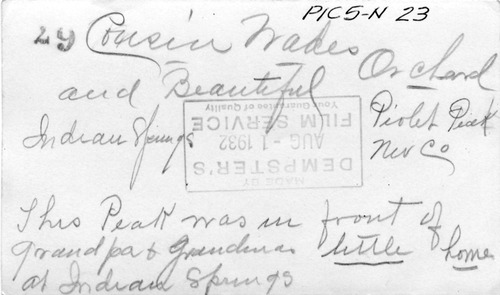 PIC5-N 23
29 Cousin Wades Orchard
and Beautiful
Indian Springs
Pi​olet Peak
Nev Co
MADE BY
DEMPSTER'S
AUG -1 1932
FILM SERVICE
Your Guarantee of Quality
This Peak was in front of
grandpa & Grandmas little home
at Indian Springs